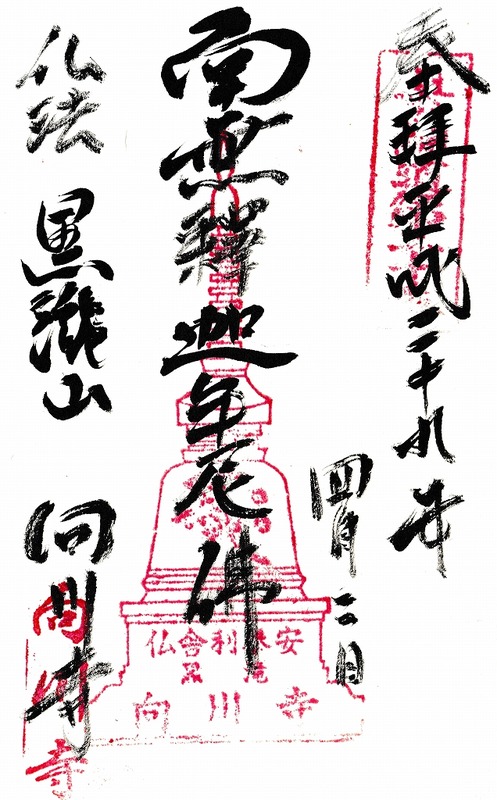 奉拝平成二十九年
四月二日
南無釋迦牟尼佛
仏法 黒瀧山 向川寺
仏舎利奉安
黒瀧
向川寺
向川寺